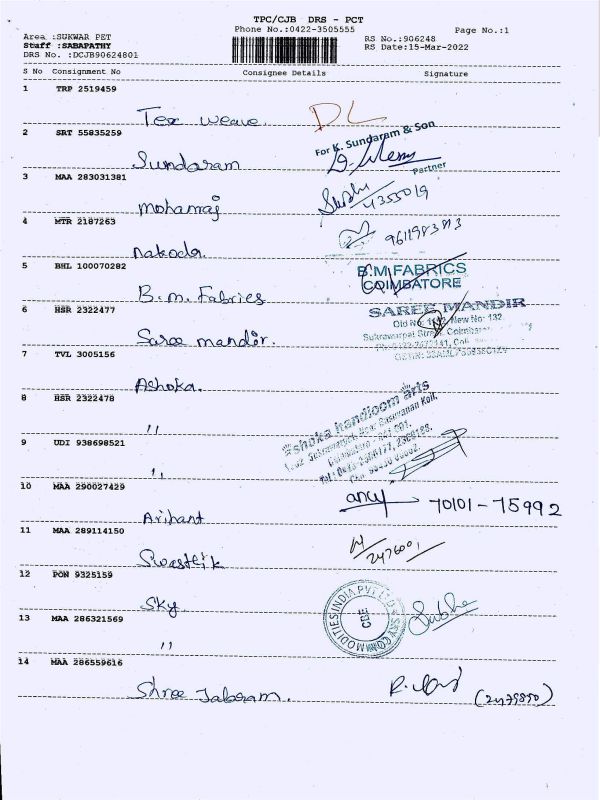 TPC/CJB DRS - PCT
Area :SUKWAR PET
Phone No.:0422-3505555
Page No.:1
Staff :SABAPATHY
RS No.:906248
DRS No. :DCJB90624801
RS Date:15-Mar-2022
S No Consignment No Consignee Details Signature
1 TRP 2519459
Tex weave. DL
2 SRT 55835259
For K. Sundaram & Son
Sundaram
Partner
3 MAA 283031381
mohamaj 4355019
4 MTR 2187263
nakoda. 9611983813
5 BHL 100070282
B.M.FABRICS
COIMBATORE
B.m. Fabries
6 HSR 2322477
SAREE MANDIR
Old No: New No: 132
Saree mandir.
7 TVL 3005156
Ashoka.
8 HSR 2322478
ashoka handloom arts
"
9 UDI 938698521
"
10 MAA 290027429
Arihant 70101-75992
11 MAA 289114150
Swastik 2476001
12 PON 9325159
Sky.
SKY COMMODITIES INDIA PVT LTD
CBE
13 MAA 286321569
"
14 MAA 286559616
Shree Jalaram. (2479850)